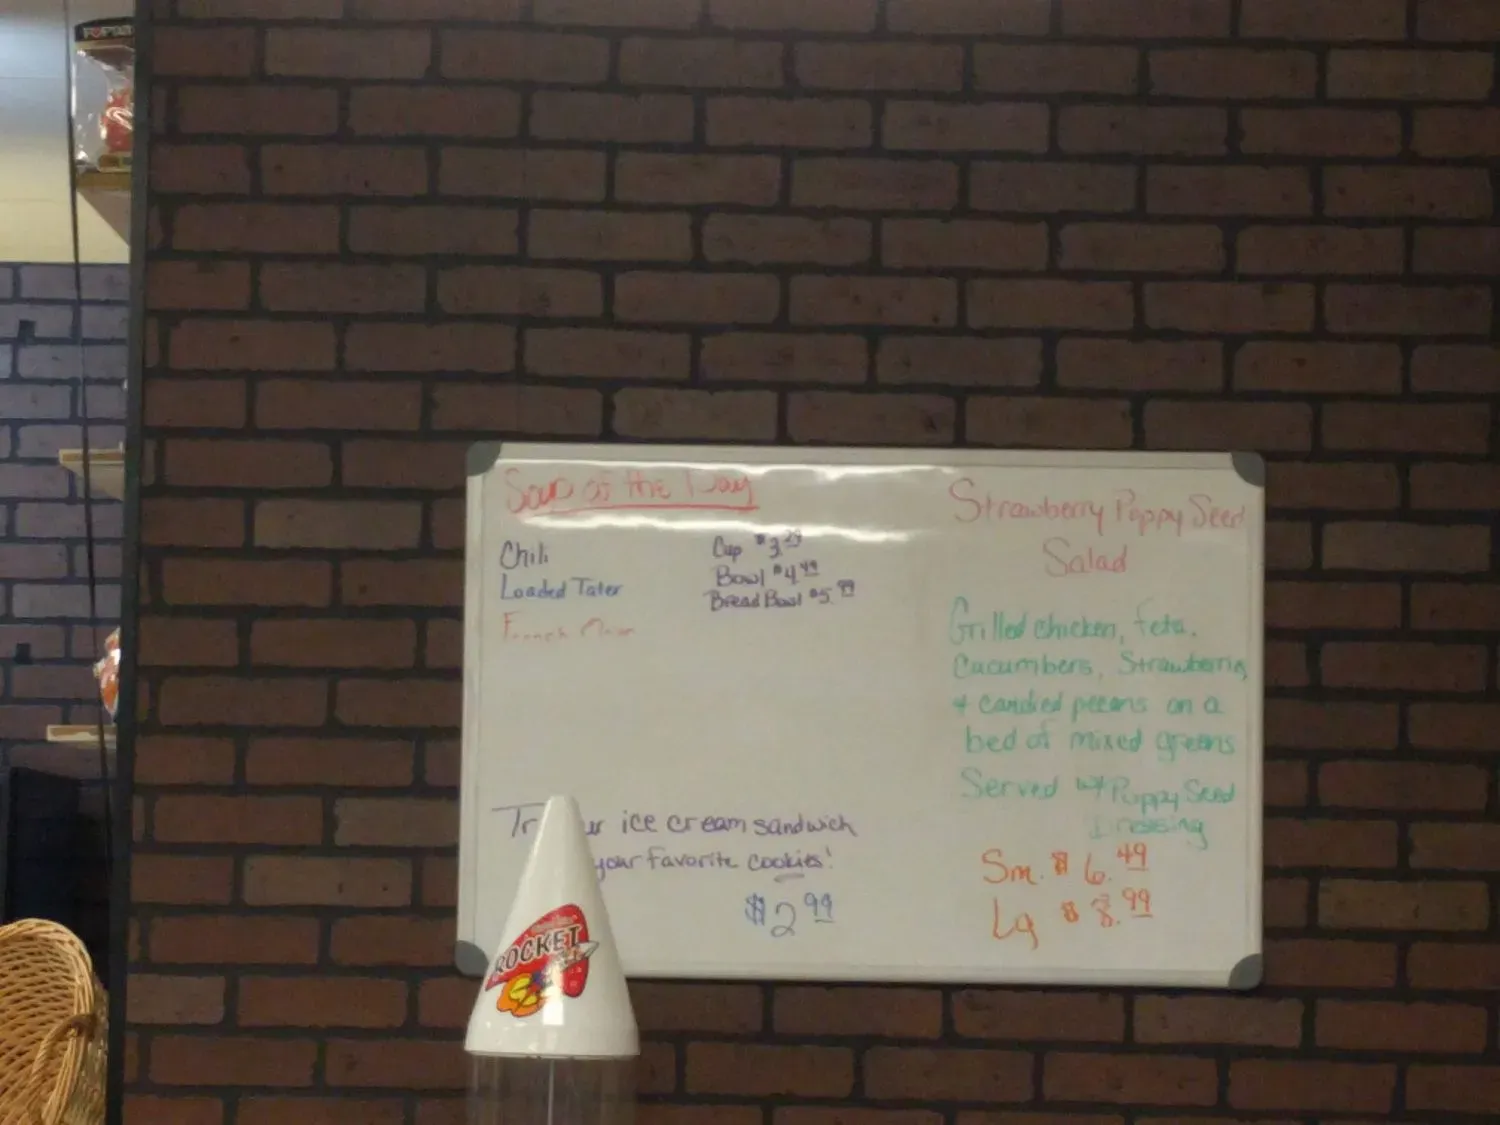 Soup of the Day
Chili
Loaded Tater
French Onion
Cup $3.29
Bowl $4.49
Bread Bowl $5.99
Strawberry Poppy Seed
Salad
Grilled chicken, feta,
Cucumbers, Strawberries
+ candied pecans on a
bed of mixed greens
Served w/ Poppy Seed
Dressing
Sm. $6.49
Lg $8.99
ice cream sandwich
your favorite cookies!
$2.99
ROCKET